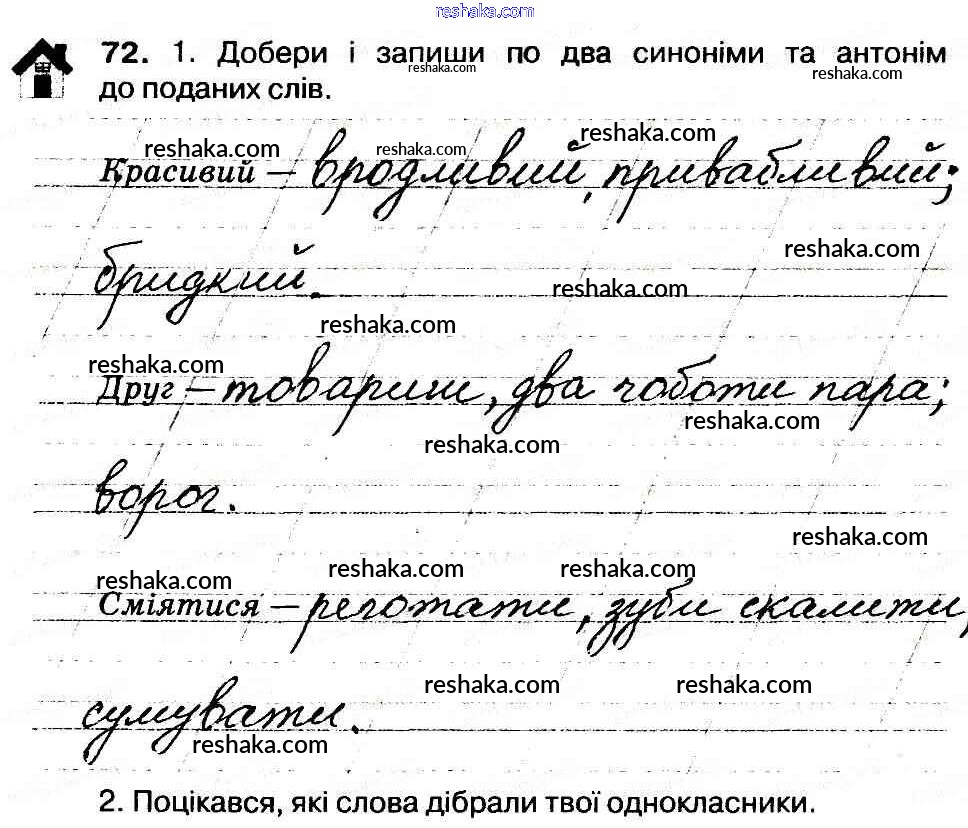 reshaka.com
72. 1. Добери і запиши по два синоніми та антонім
reshaka.com reshaka.com
до поданих слів.
reshaka.com reshaka.com reshaka.com
Красивий – вродливий, привабливий;
reshaka.com
бридкий.
reshaka.com
reshaka.com
reshaka.com
Друг – товариш, два чоботи пара;
reshaka.com
reshaka.com
ворог.
reshaka.com
reshaka.com reshaka.com reshaka.com
Сміятися – реготати, зуби скалити,
reshaka.com reshaka.com
сумувати.
reshaka.com
2. Поцікався, які слова дібрали твої однокласники.